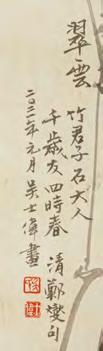 翠雲
竹君子石大人
千歲友四時春 清鄭燮句
二〇二一年元月吴士偉畫